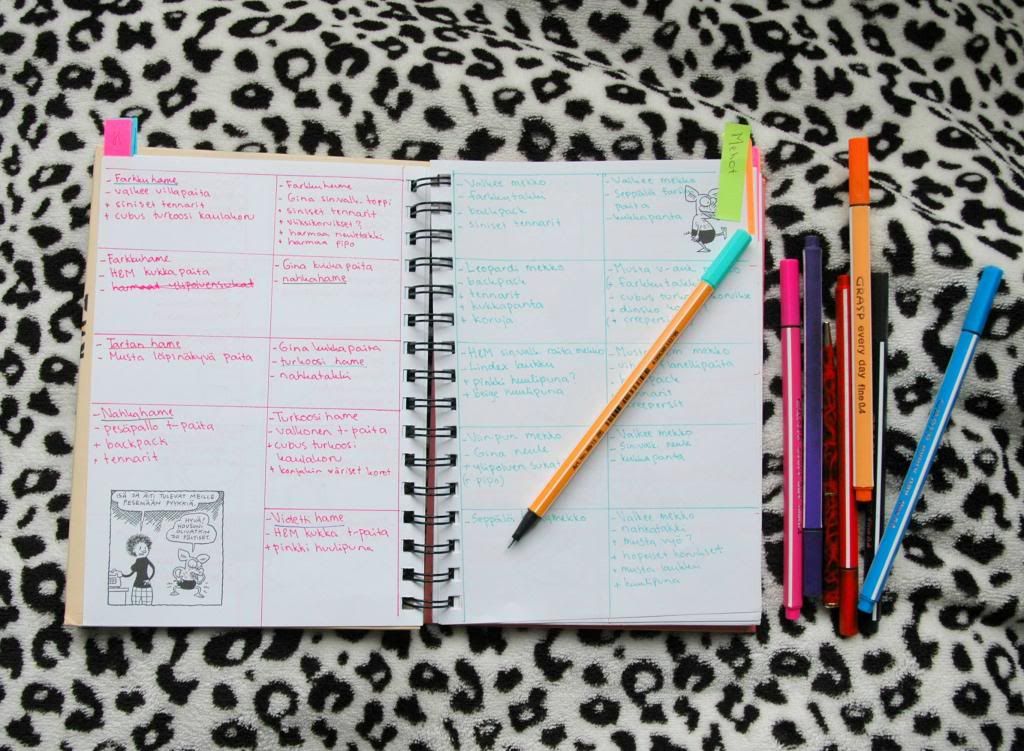 - Farkkuhame
- valkee villapaita
+ siniset tennarit
+ cubus turkoosi kaulakoru
- Farkkuhame
- Gina sin.valk. toppi
+ siniset tennarit
+ harmaa neuletakki
+ harmaa pipo
- Farkkuhame
- H&M kukkapaita
- harmaat ylipolvensukat
- Gina kukkapaita
- nahkahame
- Tartan hame
- Musta läpinäkyvä paita
- Gina kukkapaita
- turkoosi hame
- nahkatakki
- Nahkahame
- pesäpallo t-paita
+ backpack
+ tennarit
- Turkoosi hame
- valkonen t-paita
+ cubus turkoosi
kaulakoru
+ konjakin väriset korot
ISÄ JA ÄITI TULEVAT MEILLE
PESEMÄÄN PYYKKIÄ.
HYVÄ!
HOUSUNI
OLIVATKIN
JO LIKAISET.
- Videtti hame
- H&M kukka t-paita
+ pinkki huulipuna
Mekot
- Valkee mekko
- farkkutakki
- backpack
- siniset tennarit
- Valkee mekko
- Seppälä
paita
- kukkapanta
- Leopardi mekko
- backpack
+ tennarit
+ kukkapanta
+ koruja
- Musta
+ farkkutakki
- cubus
+ dinsko
(+ creepers
- H&M sin.valk. raita mekko
- Lindex laukku
+ pinkki huulipuna?
+ beige huulipuna
mekko
creepersit
mekko
- Gina neule
+ ylipolven sukat
(+ pipo)
- Valkee mekko
- Sin.valk. neule
- kukkapanta
- Seppälä mekko
- Valkee mekko
nahkatakki
+ musta vyö?
+ hopeiset korvikset
+ musta laukku
+ huulipuna
GRASP every day fine 0.4